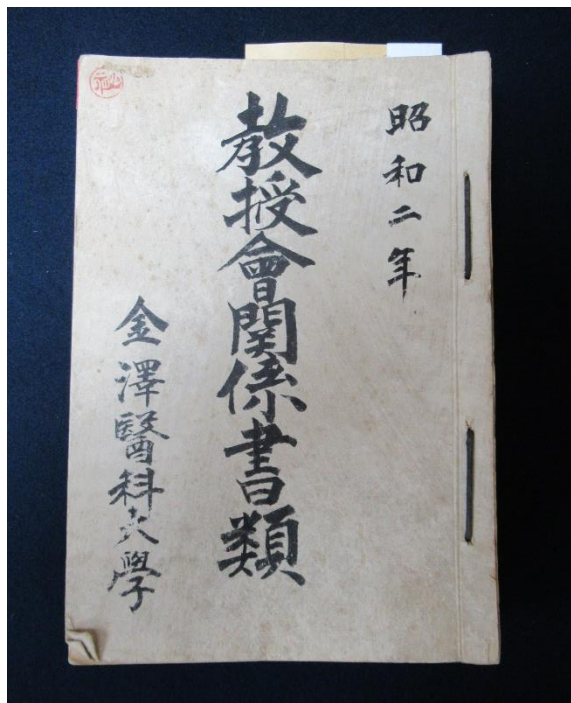 昭和二年
教授會関係書類
金澤醫科大學